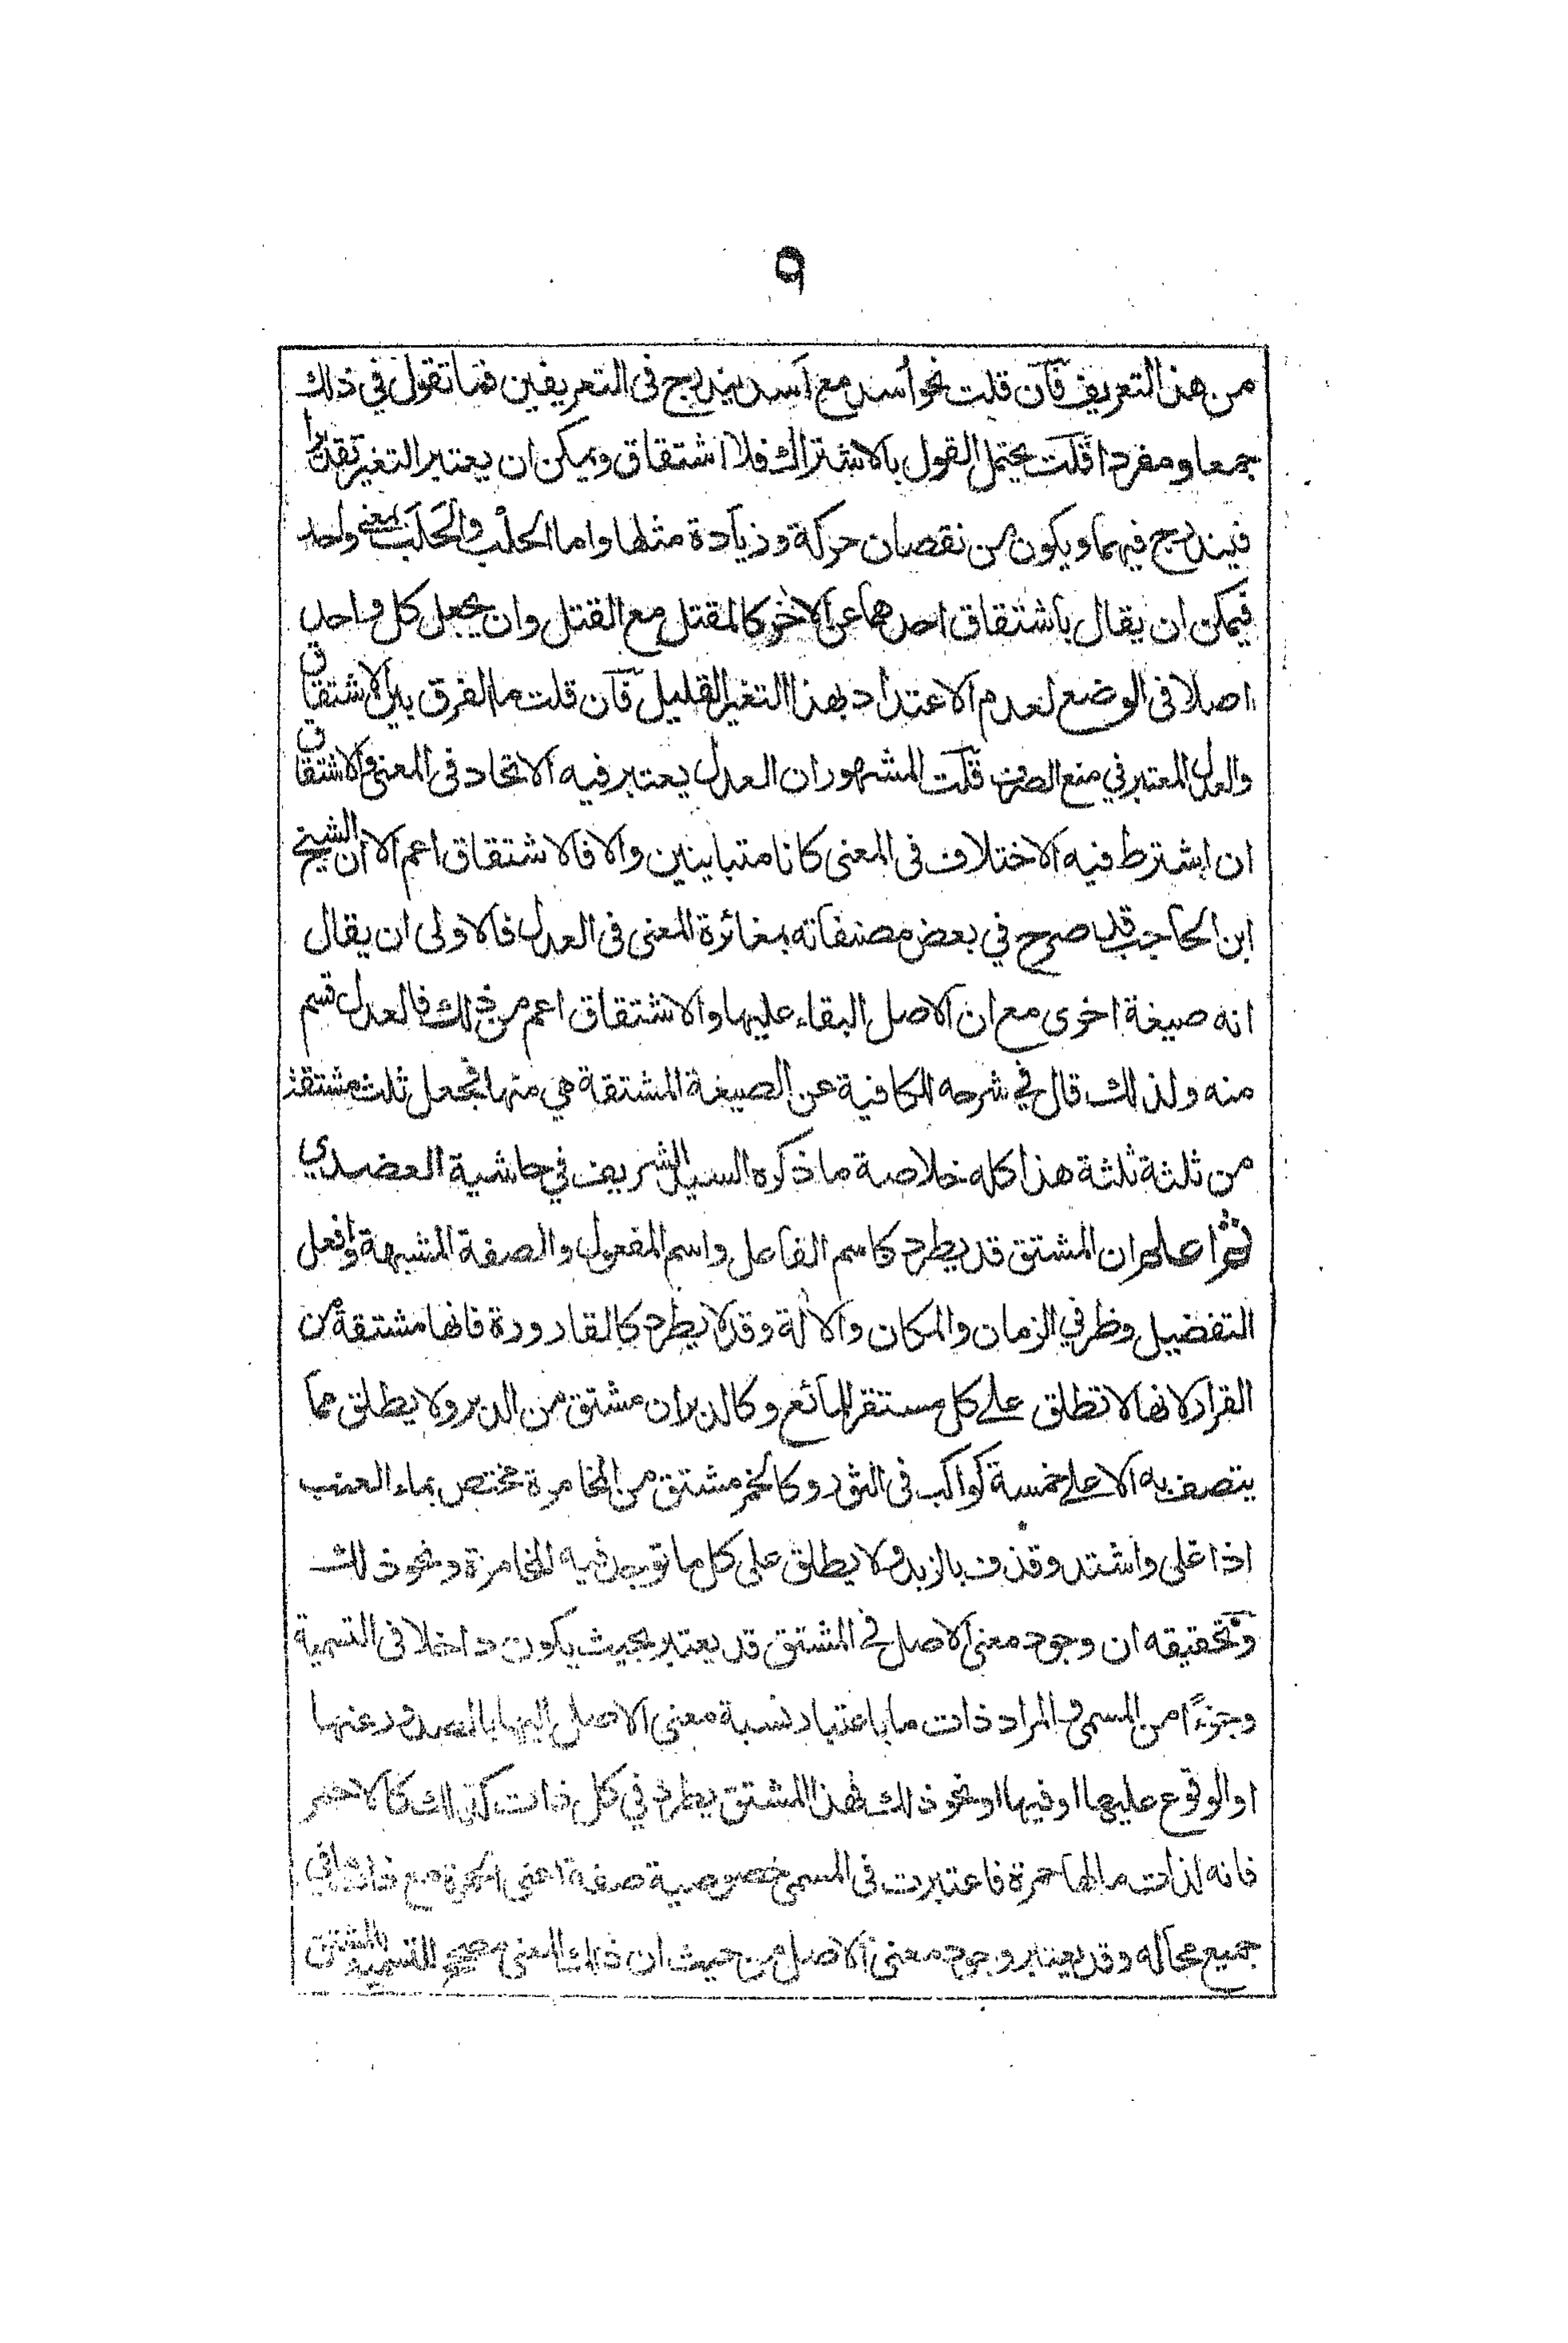 ٩
من هذا التعريف فان قلت نحو أسد مع أسد يندرج فى التعريفين فما تقول في ذلك
جمعا ومفردا قلت يحتمل القول بالاشتراك فلا اشتقاق ويمكن ان يعتبر التغير تقديرا
فيندرج فيهما ويكون من نقصان حركة وزيادة مثلها واما الحلب والحلب بمعنى واحد
فيمكن ان يقال باشتقاق احدهما عن الاخر كالمقتل مع القتل وان يجعل كل واحد
اصلا فى الوضع لعدم الاعتداد بهذا التغير القليل فان قلت ما الفرق بين الاشتقاق
والعدل المعتبر في منع الصرف قلت المشهور ان العدل يعتبر فيه الاتحاد فى المعنى والاشتقاق
ان اشترط فيه الاختلاف فى المعنى كانا متباينين والا فالاشتقاق اعم الا ان الشيخ
ابن الحاجب قد صرح في بعض مصنفاته بمغائرة المعنى فى العدل فالاولى ان يقال
انه صيغة اخرى مع ان الاصل البقاء عليها والاشتقاق اعم من ذلك فالعدل قسم
منه ولذلك قال في شرحه للكافية عن الصيغة المشتقة هي منها فجعل ثلث مشتقة
من ثلثة ثلثة هذا كله خلاصة ما ذكره السيد الشريف في حاشية العضدي
ثم اعلم ان المشتق قد يطرد كاسم الفاعل واسم المفعول والصفة المشبهة وافعل
التفضيل وظرفي الزمان والمكان والالة وقد لا يطرد كالقارورة فانها مشتقة من
القرار لانها لا تطلق على كل مستقر للمائع وكالدبران مشتق من الدبر ولا يطلق مما
يتصف به الا على خمسة كواكب فى الثور وكالخمر مشتق من المخامرة مختص بماء العنب
اذا غلى واشتد وقذف بالزبد ولا يطلق على كل ما توجد فيه المخامرة ونحو ذلك
وتحقيقه ان وجود معنى الاصل في المشتق قد يعتبر بحيث يكون داخلا فى التسمية
وجزءًا من المسمى والمراد ذات ما باعتبار نسبة معنى الاصل اليها بالصدور عنها
او الوقوع عليها او فيها او نحو ذلك فهذا المشتق يطرد في كل ذات كذلك كالاحمر
فانه لذات ما لها حمرة فاعتبرت فى المسمى خصوصية صفة اعنى الحمرة مع ذات ما في
جميع محاله وقد يعتبر وجود معنى الاصل من حيث ان ذلك المعنى مصحح للتسمية بالمشتق